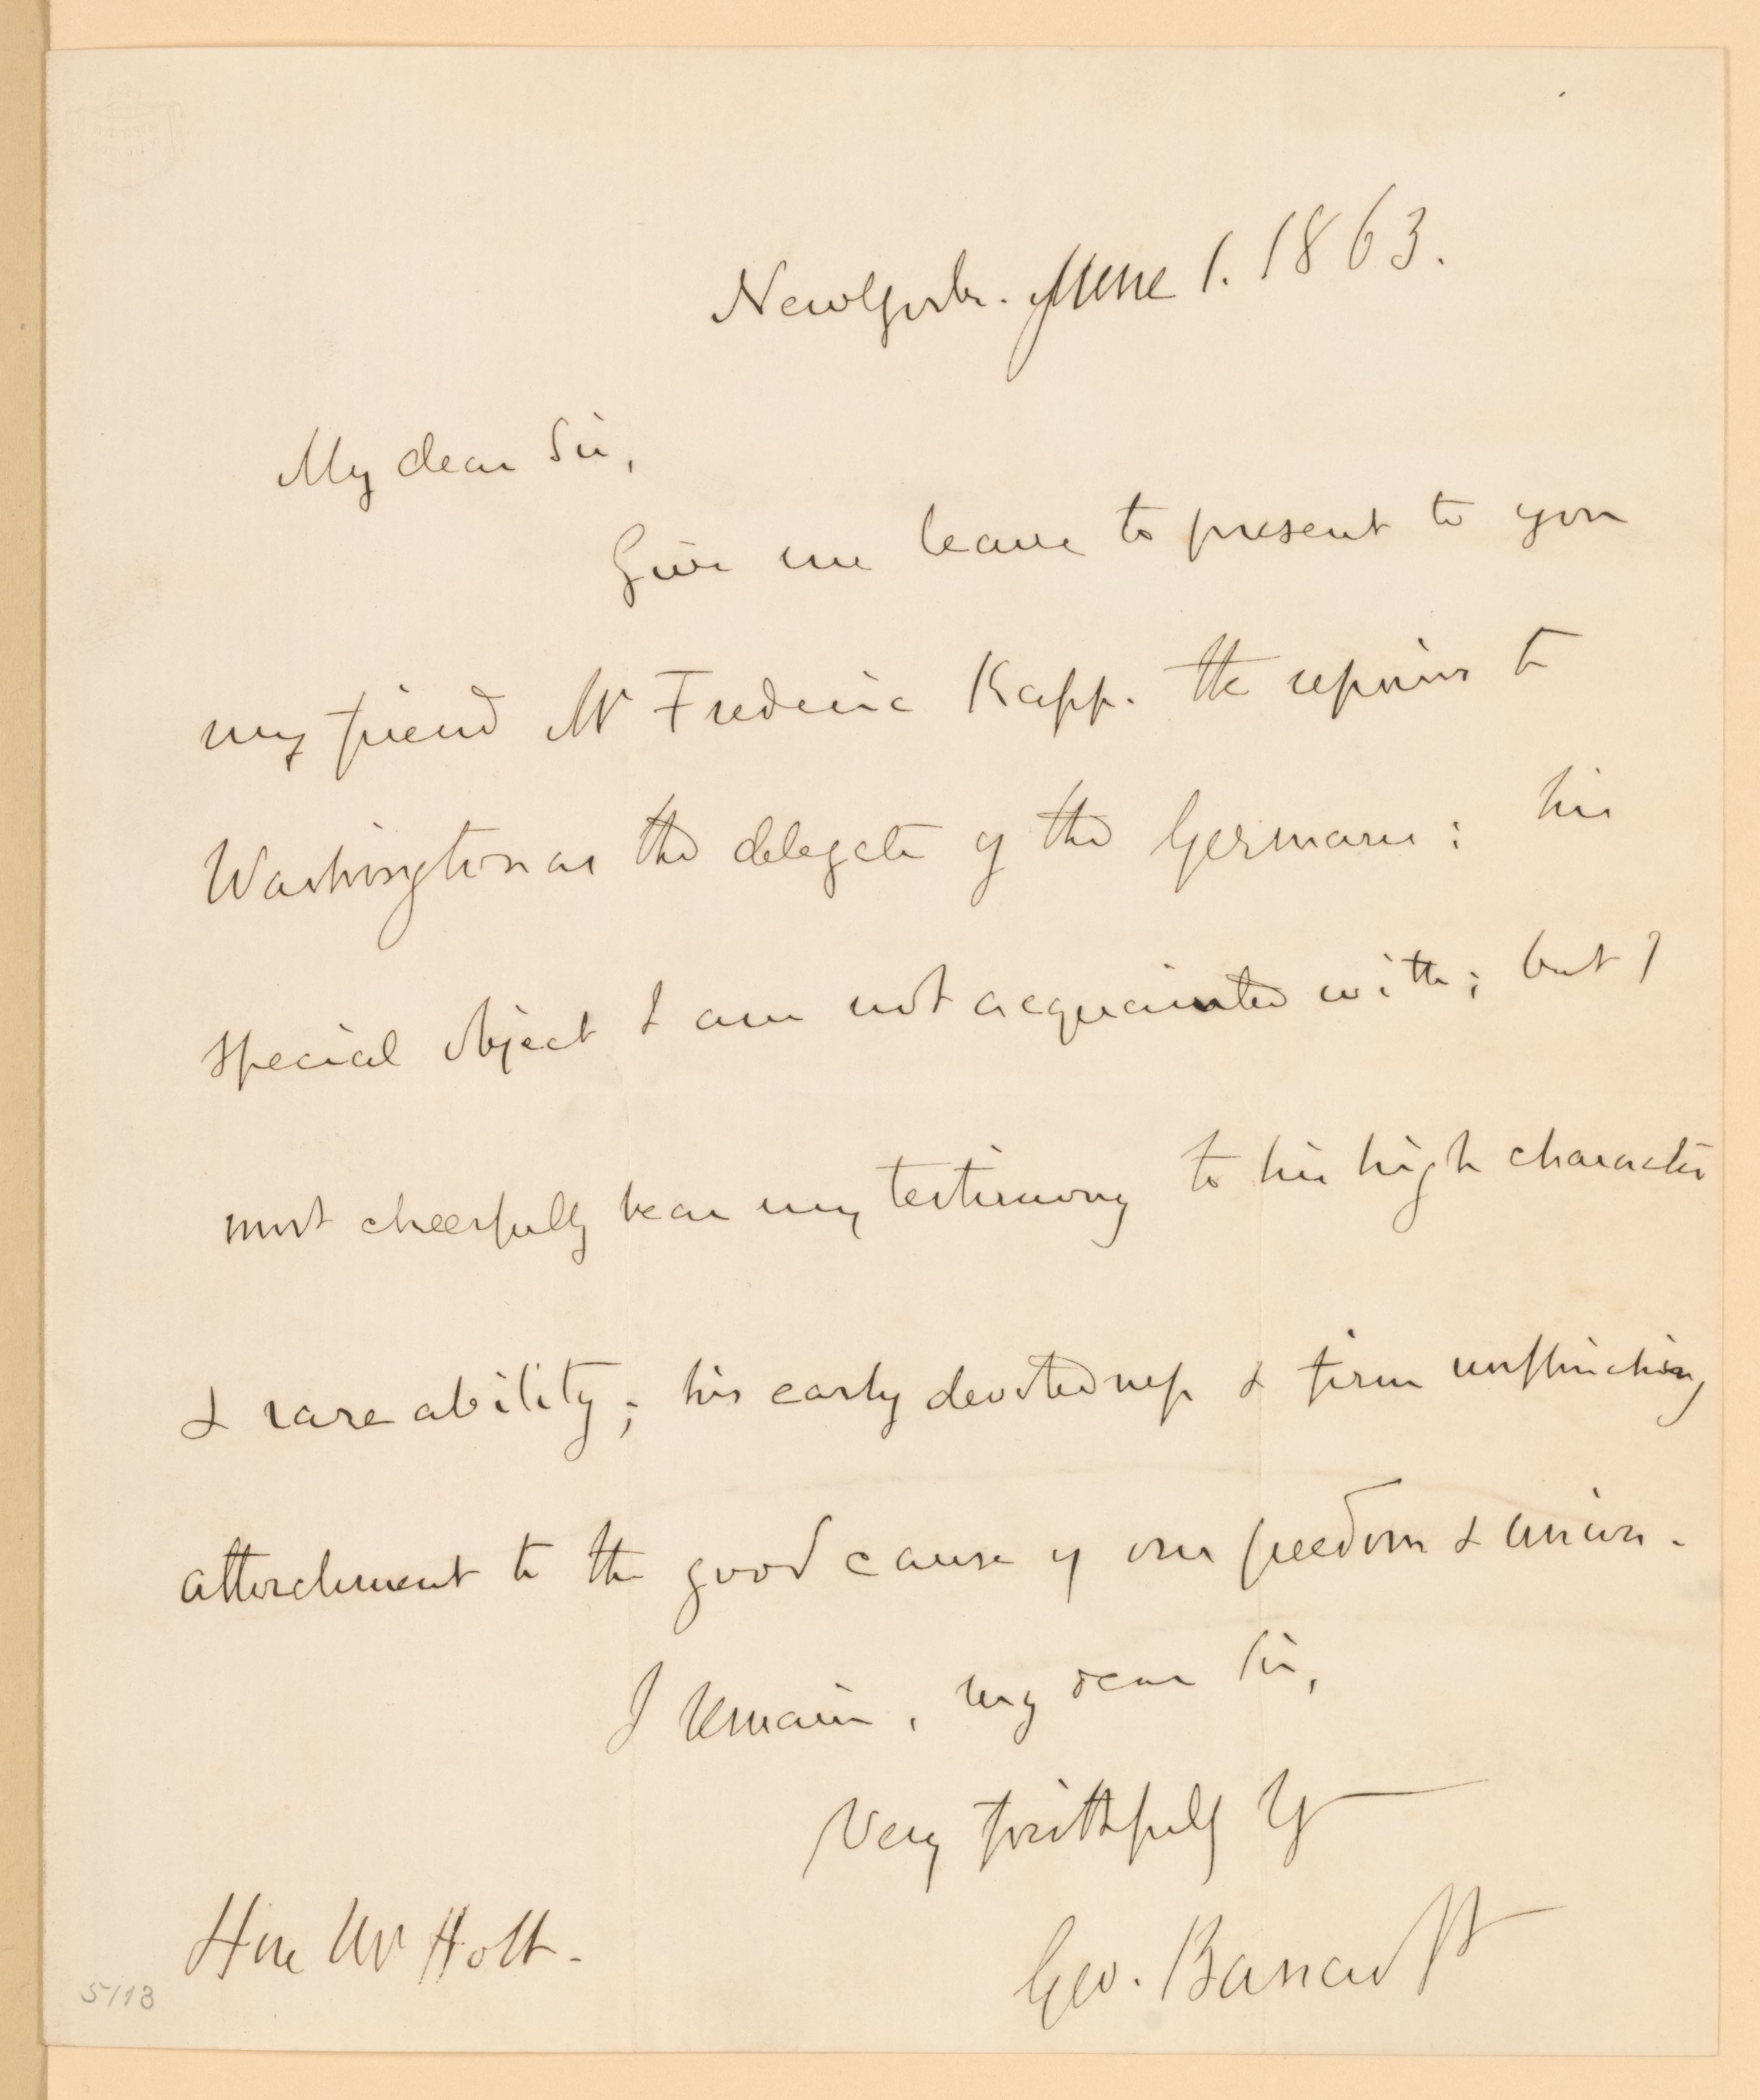 New York. June 1. 1863.
My dear Sir,
Give me leave to present to you
my friend Mr Frederic Kapp. He repairs to
Washington as the delegate of the Germans; his
special object I am not acquainted with; but I
most cheerfully bear my testimony to his high character
& rare ability; his early devotedness & firm unflinching
attachment to the good cause of our freedom & union.
I remain, my dear Sir,
Very faithfully Yr
Geo. Bancroft
Hon Mr Holt.
5113